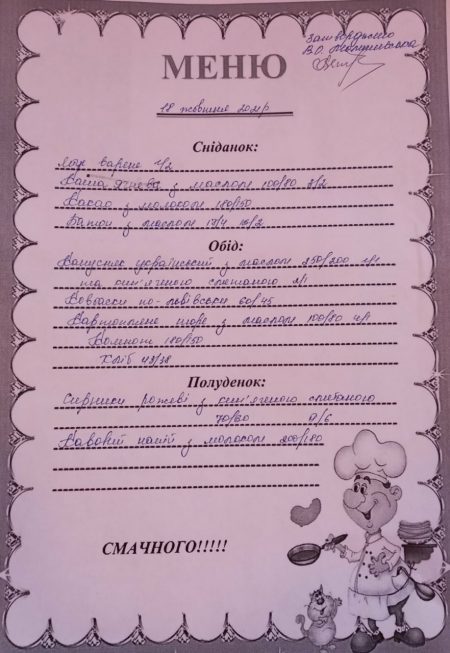 Затверджено
В.О.
МЕНЮ
18 жовтня 2021р
Сніданок:
Яйце варене 1/2
Каша ячнева з маслом 100/80 3/2
Какао з молоком 180/150
Батон з маслом
Обід:
Капусняк український з маслом 250/200
та кип'яченою сметаною
Ковбаски по-львівськи 60/45
Картопляне пюре з маслом 100/80
Компот 180/150
Хліб 48/38
Полуденок:
Сирники рожеві з кип'яченою сметаною
70/60 9/6
Кавовий напій з молоком 200/180
СМАЧНОГО!!!!!